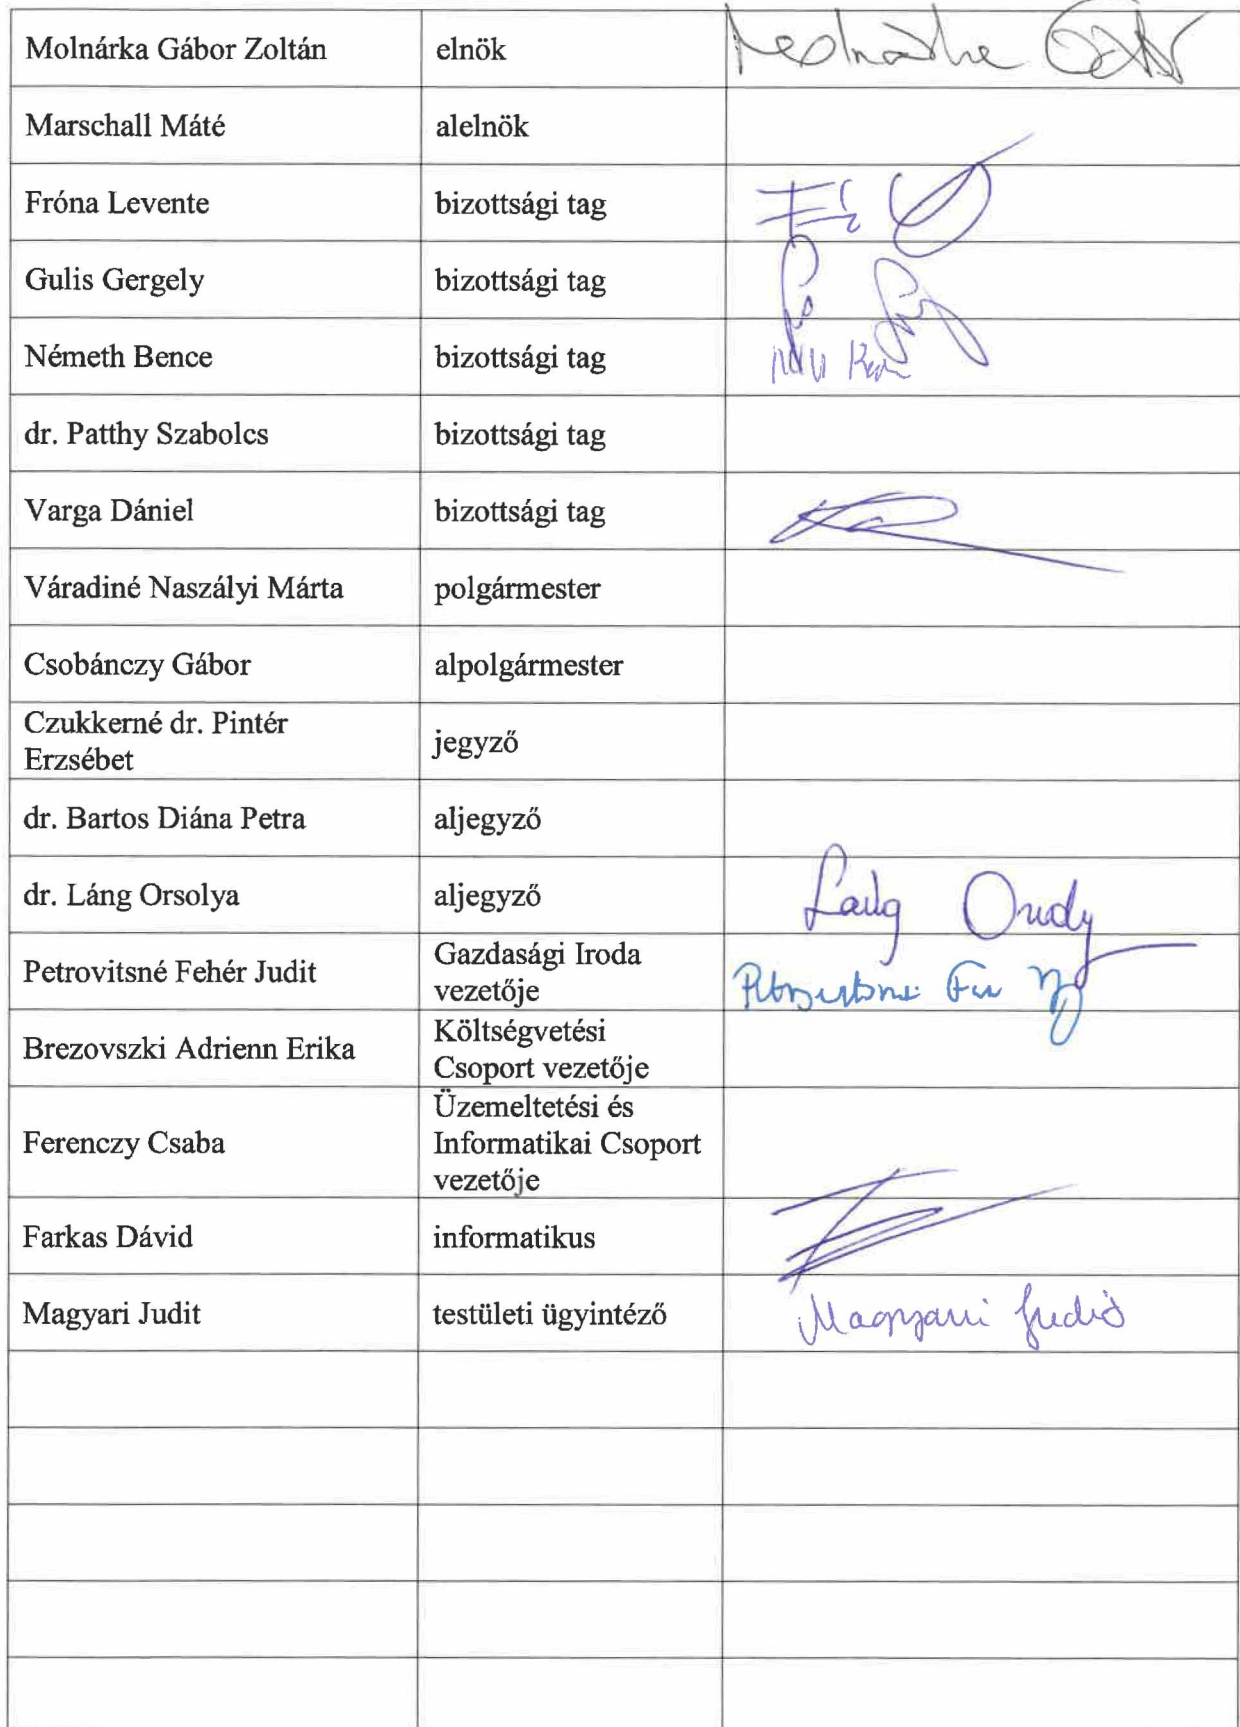 Molnárka Gábor Zoltán elnök
Marschall Máté alelnök
Fróna Levente bizottsági tag
Gulis Gergely bizottsági tag
Németh Bence bizottsági tag
dr. Patthy Szabolcs bizottsági tag
Varga Dániel bizottsági tag
Váradiné Naszályi Márta polgármester
Csobánczy Gábor alpolgármester
Czukkerné dr. Pintér
Erzsébet
jegyző
dr. Bartos Diána Petra aljegyző
dr. Láng Orsolya aljegyző
Petrovitsné Fehér Judit
Gazdasági Iroda
vezetője
Brezovszki Adrienn Erika
Költségvetési
Csoport vezetője
Ferenczy Csaba
Üzemeltetési és
Informatikai Csoport
vezetője
Farkas Dávid informatikus
Magyari Judit testületi ügyintéző Magyari Judit